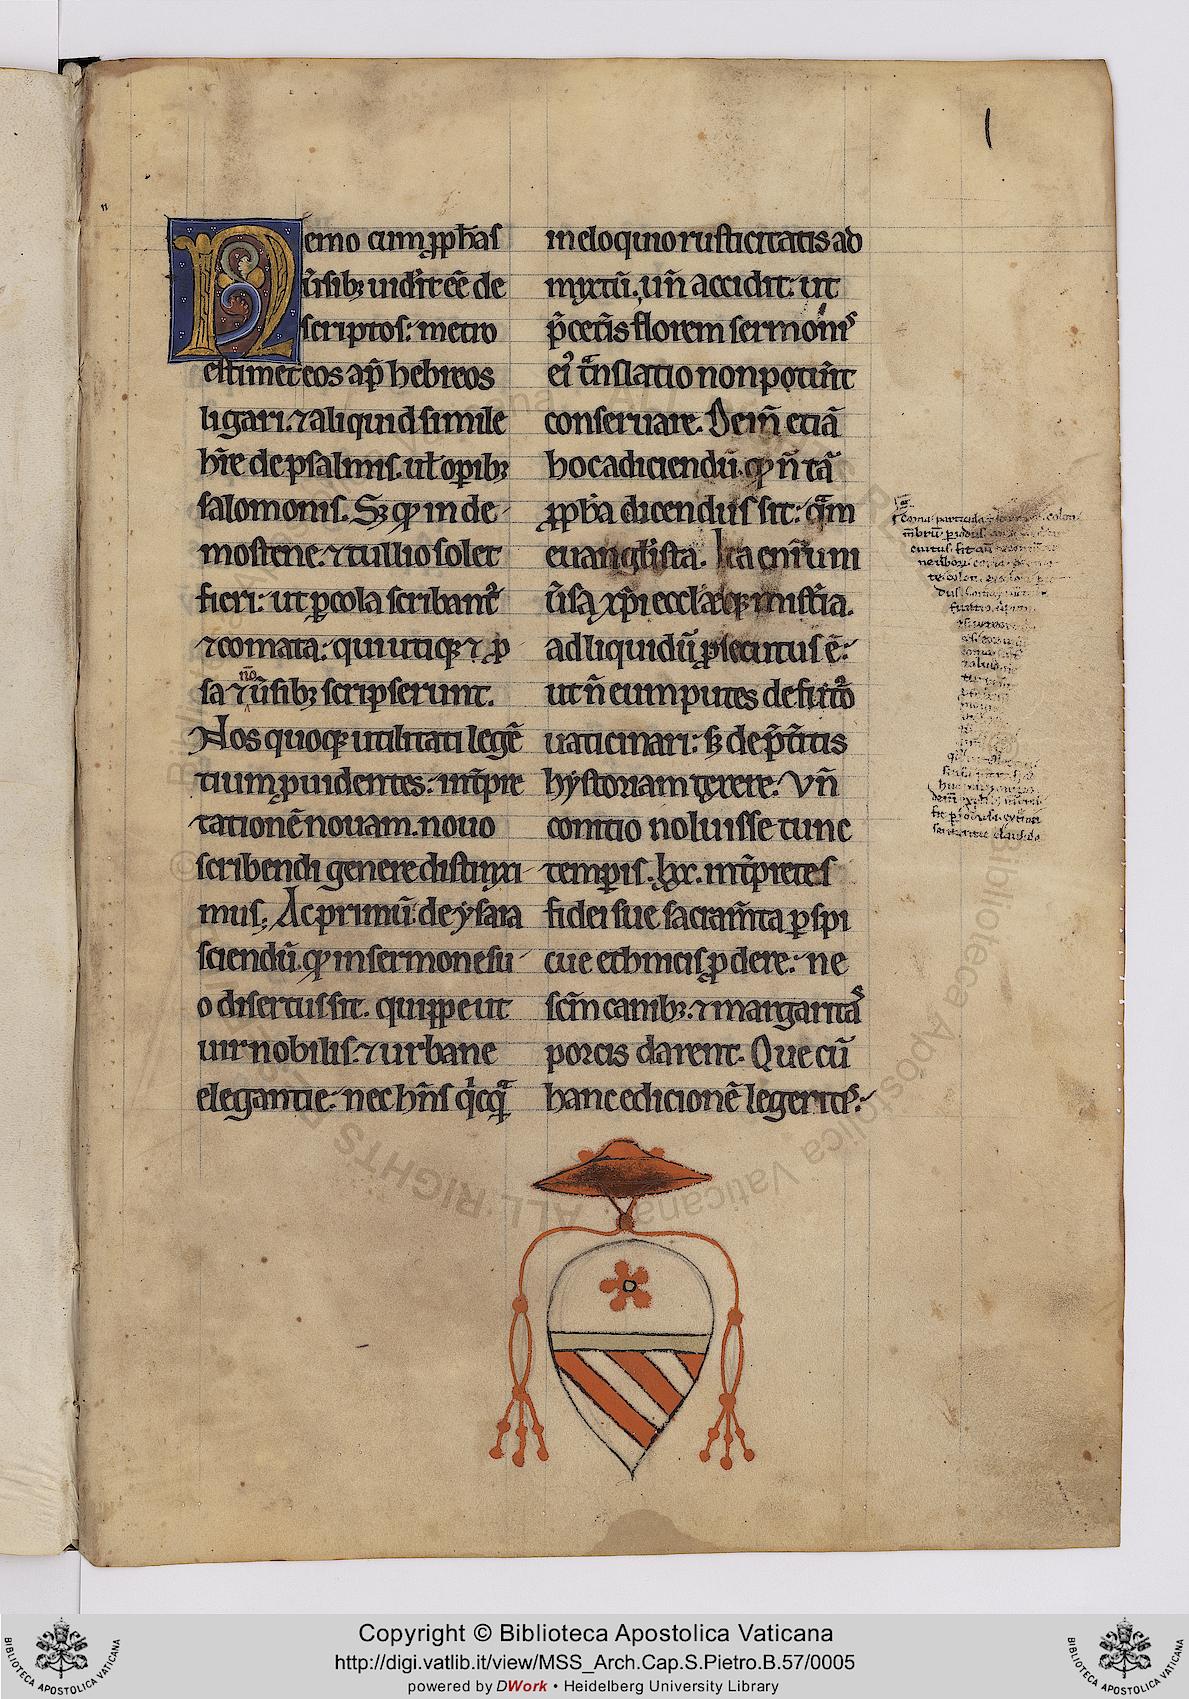 Nemo cum ꝓph̄as
ṽsibꝫ uidͥt eē de
scriptos: metro
estimet eos ap̄ hebreos
ligari. ⁊ aliquid simile
hr̄e de psalmis. ut̄ opibꝫ
salomonis. Sꝫ ꝙ in de
mostene. ⁊ tullio solet
fieri: ut ꝑ cola scribant᷑
⁊ comata: qui utiqꝫ ⁊ ꝓ
nō
sa ⁊ ũsibꝫ scripserunt.
Nos quoqꝫ utilitati legē
tium ꝓuidentes: int̄pre
tationē nouam. nouo
scribendi genere distinxi
mus; Ac primū. de ysaia
sciendū. ꝙ in sermone su
o disertus sit. quippe ut
uir nobilis. ⁊ urbane
elegantie: nec hn̄s qͥcqᷓ
in eloquio rusticitatis ad
mixtū. un̄ accidit: ut
p̄ cet̄is florem sermonis
eiꝰ tᷓnslatio non potũit
conseruare. Dein̄ etiā
hoc adiciendū. ꝙ n̄ tā
ꝓph̄a dicendus sit: qᷓm
euangl̄ista. Ita enim̄ uni
ũsa xp̄i eccl̄eqꝫ mist̄ia.
ad liquidū ꝓsecutus ē:
ut n̄ eum putes de futᷣo
uaticinari: sꝫ de p̄t̄itis
hystoriam texere. Vn̄
conitio noluisse tunc
tempis. lxx. int̄pretes
fidei sue sacram̄ta ꝑspi
cue ethnicis ꝓdere: ne
scm̄ canibꝫ. ⁊ margaritas
porcis darent. Que cū
hanc edicionē legeritis:
1
Copyright © Biblioteca Apostolica Vaticana
http://digi.vatlib.it/view/MSS_Arch.Cap.S.Pietro.B.57/0005
powered by DWork • Heidelberg University Library
BIBLIOTECA APOSTOLICA VATICANA
BIBLIOTECA APOSTOLICA VATICANA